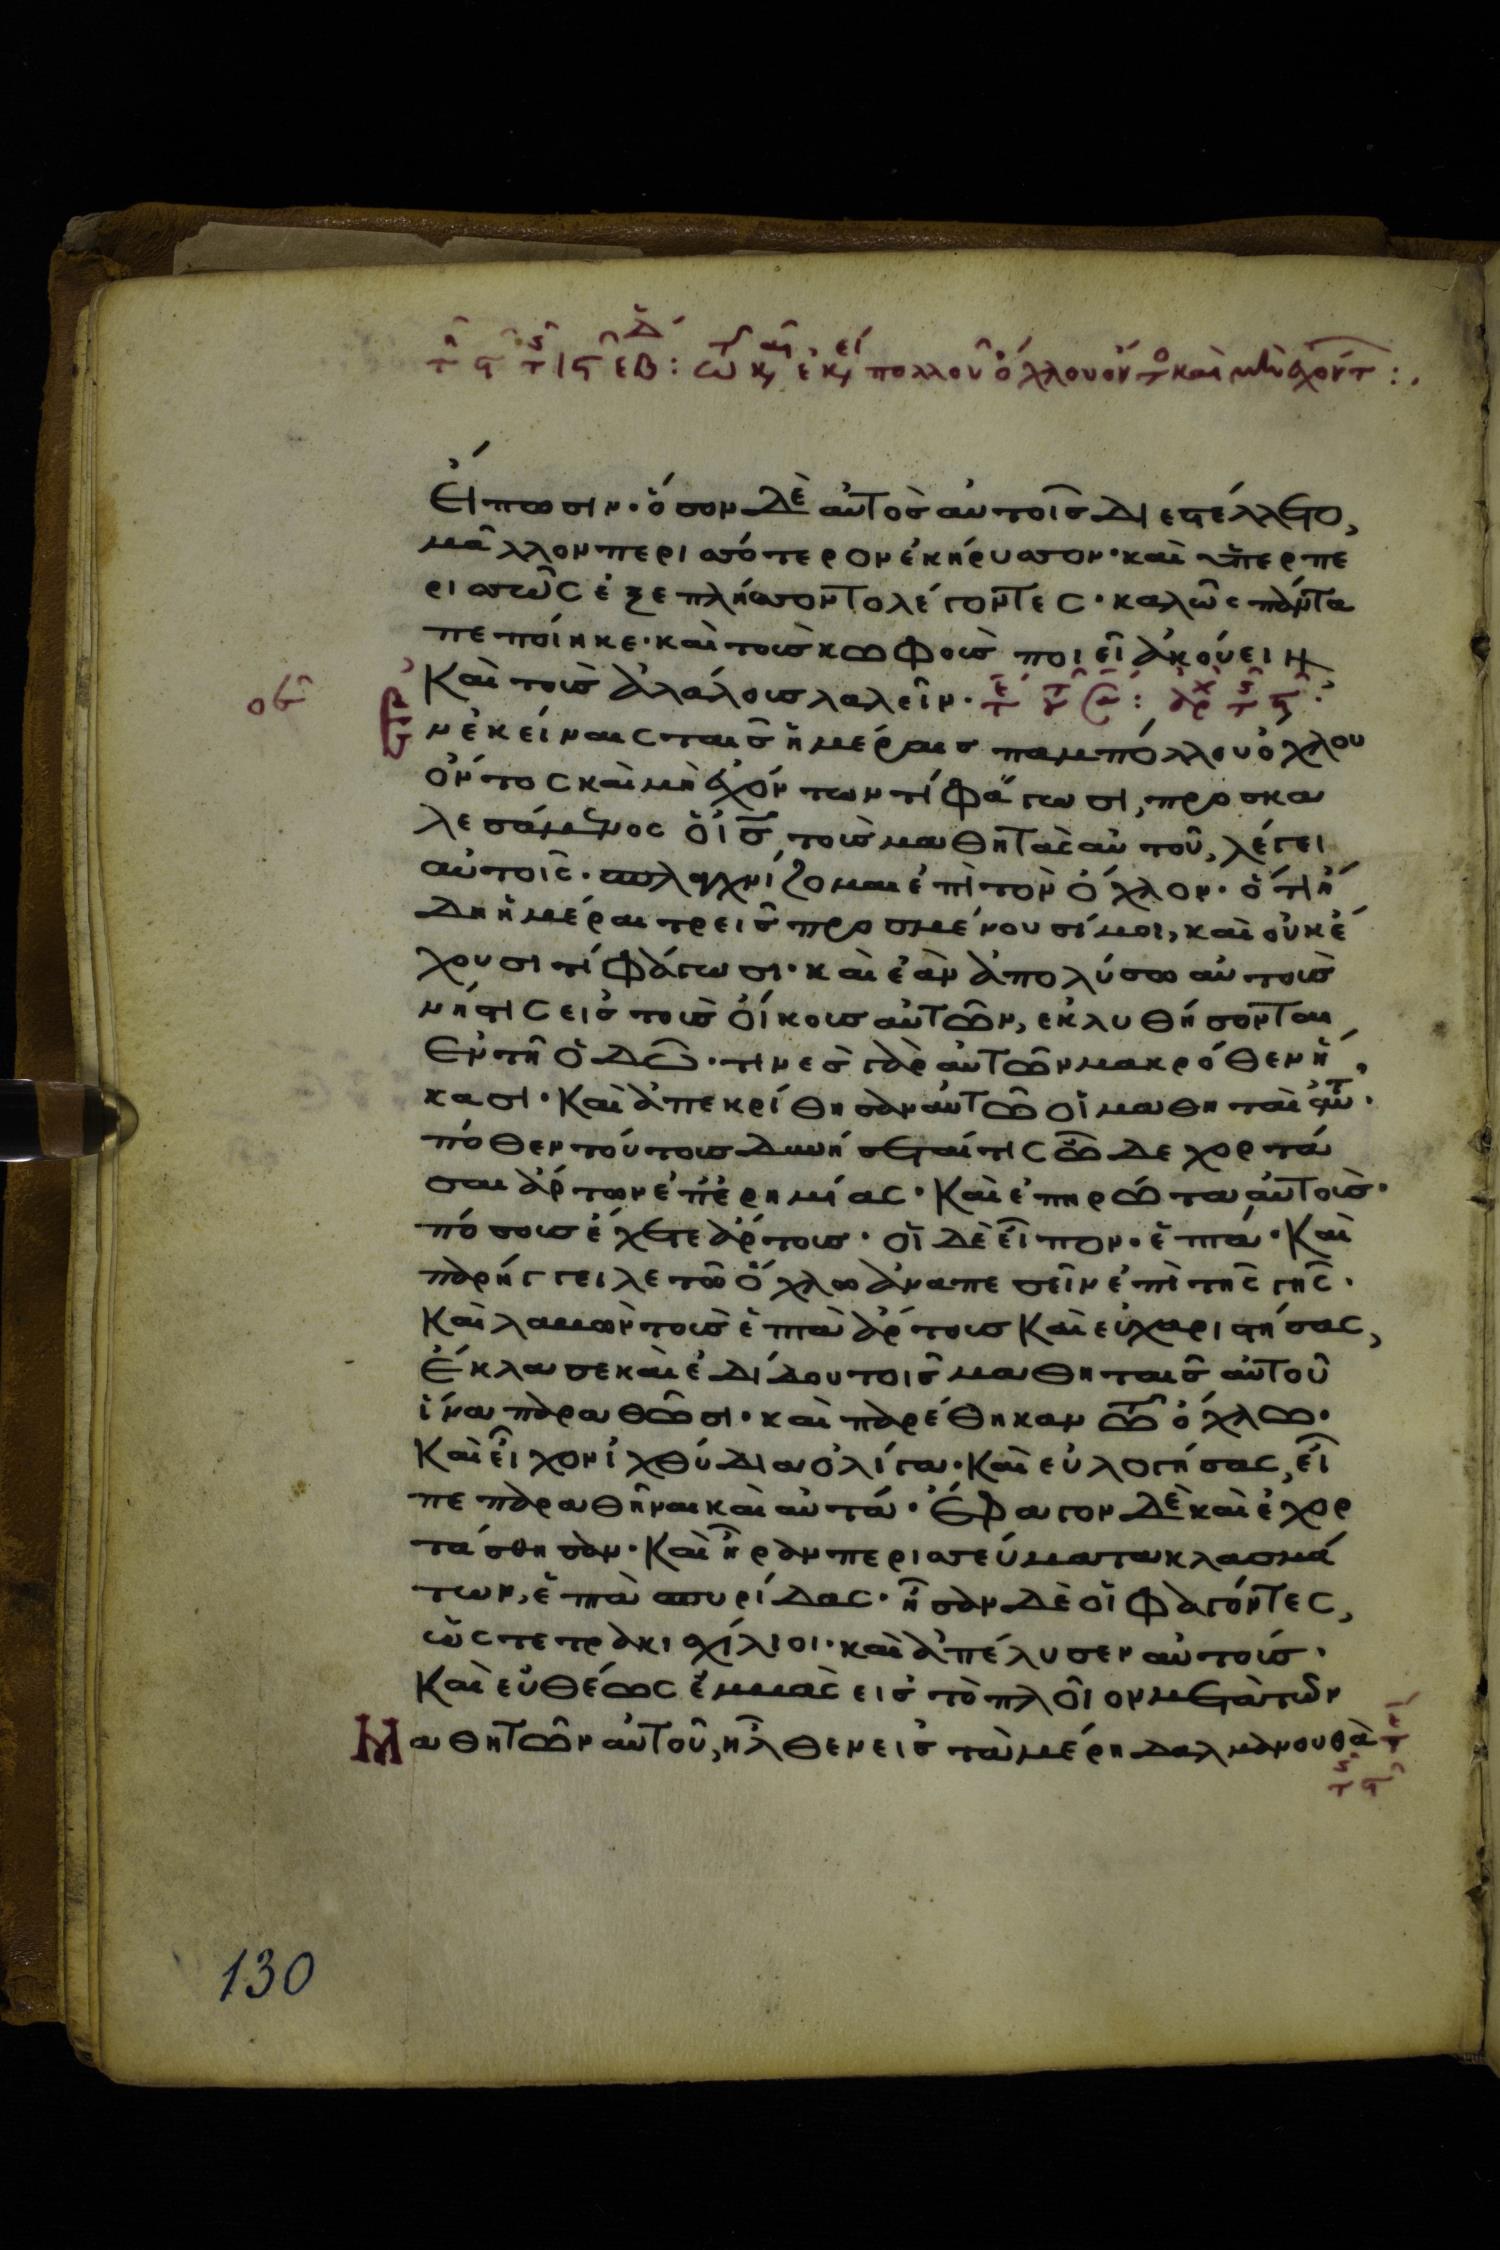 τῇ ϛ τῆς ιϛ ἑβδ: τῷ καιρῷ ἐκείνῳ πολλοῦ ὄχλου ὄντος καὶ μὴ ἐχόντ :.
εἴπωσιν· ὅσον δὲ αὐτὸς αὐτοῖς διεστέλλετο,
μᾶλλον περισσότερον ἐκήρυσσον· καὶ ὑπερπε
ρισσῶς ἐξεπλήσσοντο λέγοντες· καλῶς πάντα
πεποίηκε· καὶ τοὺς κωφοὺς ποιεῖ ἀκούειν
Καὶ τοὺς ἀλάλους λαλεῖν·
οβ Ἐ
ν ἐκείναις ταῖς ἡμέραις παμπόλλου ὄχλου
ὄντος καὶ μὴ ἐχόντων τί φάγωσι, προσκα
λεσάμενος ὁ ις τοὺς μαθητὰς αὐτοῦ, λέγει
αὐτοῖς· σπλαγχνίζομαι ἐπὶ τὸν ὄχλον· ὅτι ἤ
δη ἡμέραι τρεῖς προσμένουσί μοι, καὶ οὐκ ἔ
χουσι τί φάγωσι· καὶ ἐὰν ἀπολύσω αὐτοὺς
νήστις εἰς τοὺς οἴκους αὐτῶν, ἐκλυθήσονται
Ἐν τῇ ὁδῷ· τινὲς γὰρ αὐτῶν μακρόθεν ἥ
κασι· Καὶ ἀπεκρίθησαν αὐτῷ οἱ μαθηταὶ αὐτ·
πόθεν τούτους δυνήσεταί τις ὧδε χορτά
σαι ἄρτων ἐπ' ἐρημίας· Καὶ ἐπηρώτα αὐτούς·
πόσους ἔχετε ἄρτους· οἱ δὲ εἶπον· ἑπτά· Καὶ
παρήγγειλε τῷ ὄχλῳ ἀναπεσεῖν ἐπὶ τῆς γῆς·
Καὶ λαβὼν τοὺς ἑπτὰ ἄρτους Καὶ εὐχαριστήσας,
Ἔκλασε καὶ ἐδίδου τοῖς μαθηταῖς αὐτοῦ
ἵνα παραθῶσι· καὶ παρέθηκαν τῷ ὄχλῳ·
Καὶ εἶχον ἰχθύδια ὀλίγα· Καὶ εὐλογήσας, εἶ
πε παραθῆναι καὶ αὐτά· Ἔφαγον δὲ καὶ ἐχορ
τάσθησαν· Καὶ ἦραν περισσεύματα κλασμά
των, ἑπτὰ σπυρίδας· ἦσαν δὲ οἱ φαγόντες,
ὡς τετρακισχίλιοι· καὶ ἀπέλυσεν αὐτούς·
Καὶ εὐθέως ἐμβὰς εἰς τὸ πλοῖον μετὰ τῶν
Μαθητῶν αὐτοῦ, ἦλθεν εἰς τὰ μέρη δαλμανουθὰ
130